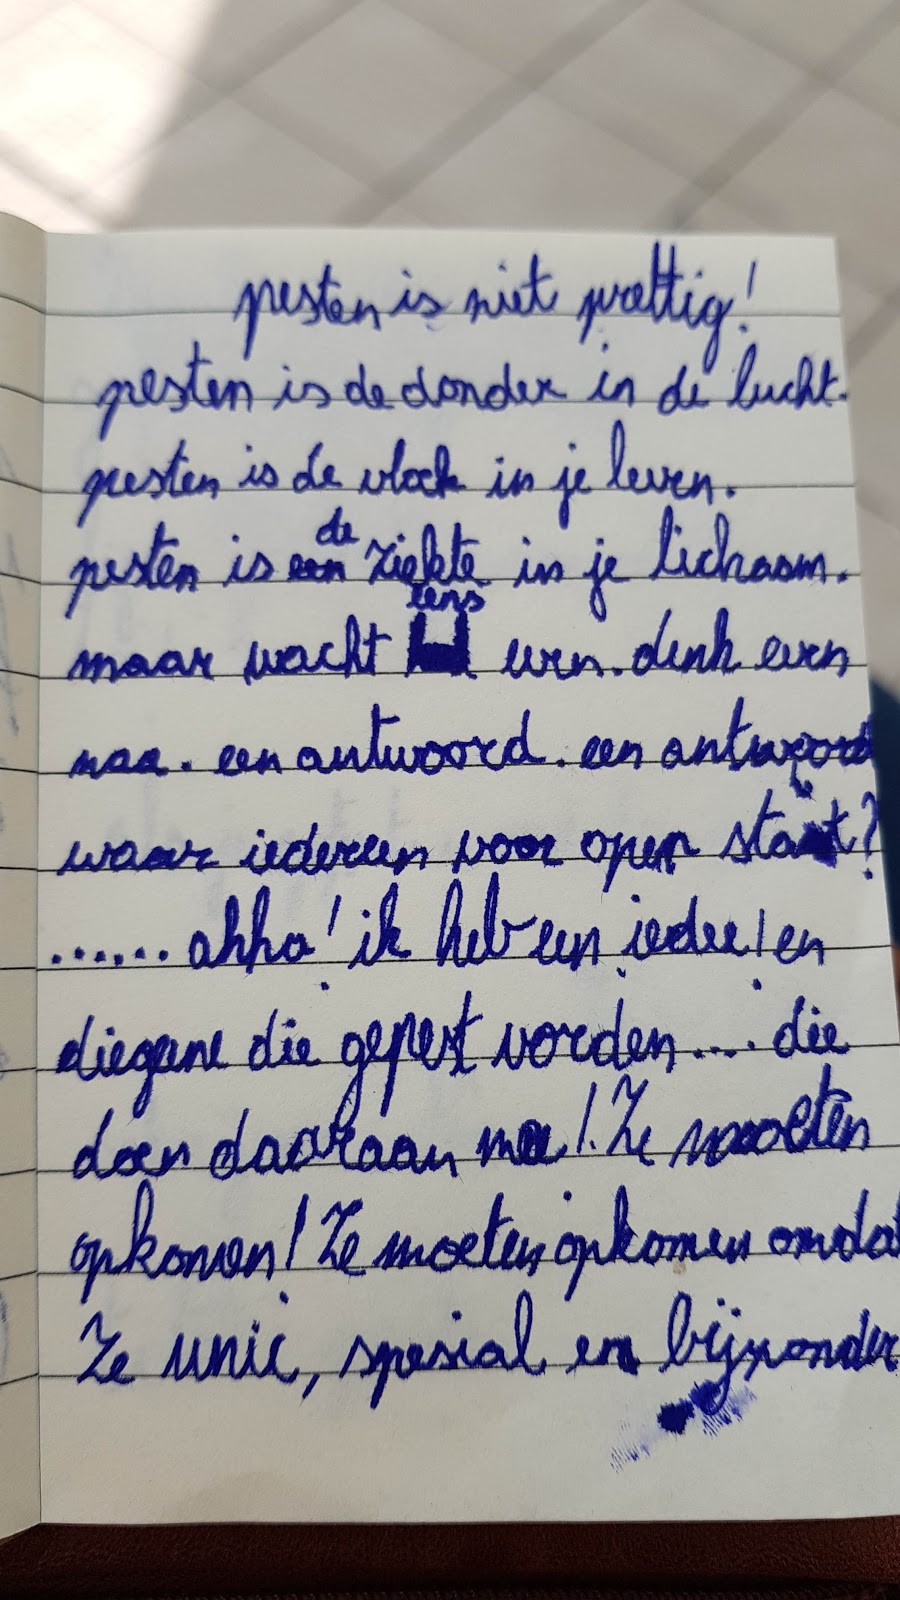 pesten is niet prettig!
pesten is de donder in de lucht.
pesten is de vloek in je leven.
pesten is de ziekte in je lichaam.
maar wacht eens even. denk even
naa. een antwoord. een antwoord
waar iedereen voor open staat?
...... ahha! ik heb een iedee! en
diegene die gepest worden.... die
doen daaraan mee! Ze moeten
opkomen! Ze moeten opkomen omdat
Ze unic, spesial en bijzonder